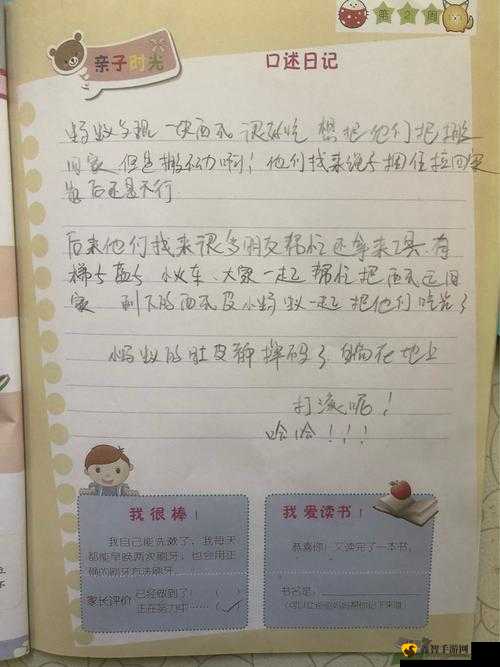 第2周
亲子时光
口述日记
蚂蚁发现一块西瓜 很好吃 想把他们把搬
回家 但是搬不动啊！他们找来绳子捆住拉回家
最后还是不行
后来他们找来很多朋友帮忙还拿来工具.有
梯子 盘子 小火车、大家一起帮忙把西瓜运回
家 剩下的西瓜皮小蚂蚁一起把他们吃光了
小蚂蚁的肚皮都撑破了 躺在地上
打滚呢！
哈哈！！！
我很棒！
我自己能洗漱了，我每天
都能早晚两次刷牙，也会用正
确的刷牙方法刷牙。
家长评价 已经做到了：（ ）
正在努力中……（✓）
我爱读书！
恭喜你！又读完了一本书，
书名是：